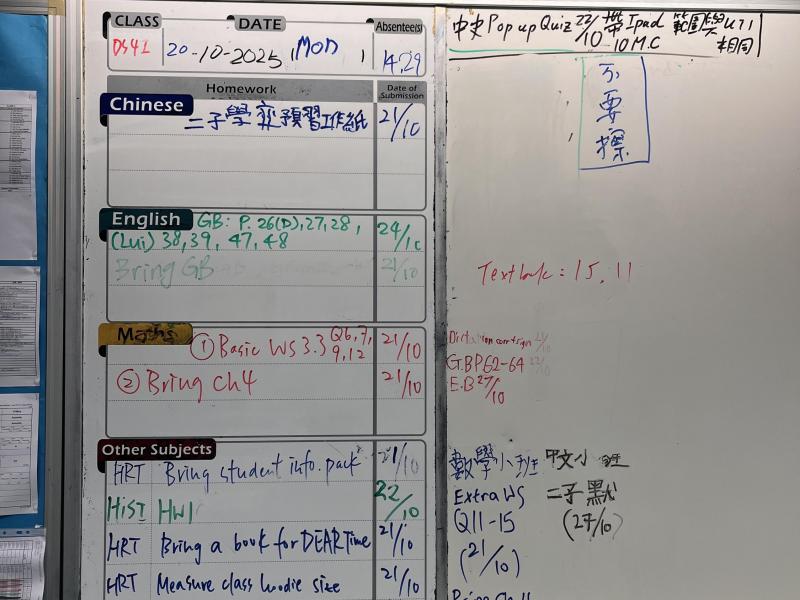 CLASS DATE Absentee(s)
DS4I 20-10-2025 Mon 14,29
Homework Date of Submission
Chinese 二子學弈預習工作紙 21/10
English GB: P. 26(D),27,28, 24/10
(Lui) 38,39, 47,48
Bring GB 21/10
Maths ① Basic WS 3.3 Q6,7,9,12 21/10
② Bring Ch4 21/10
Other Subjects
HRT Bring student info. pack 21/10
HIST HW1 22/10
HRT Bring a book for DEAR Time 21/10
HRT Measure class hoodie size 21/10
中史 Pop up Quiz 22/10 帶 Ipad 範圍
10 M.C 相同
不要擦
Textbook: 15.11
G.B P.62-64 22/10
E.B 27/10
數學小班
Extra WS
Q11-15
(21/10)
中文小班
二子默
(24/10)